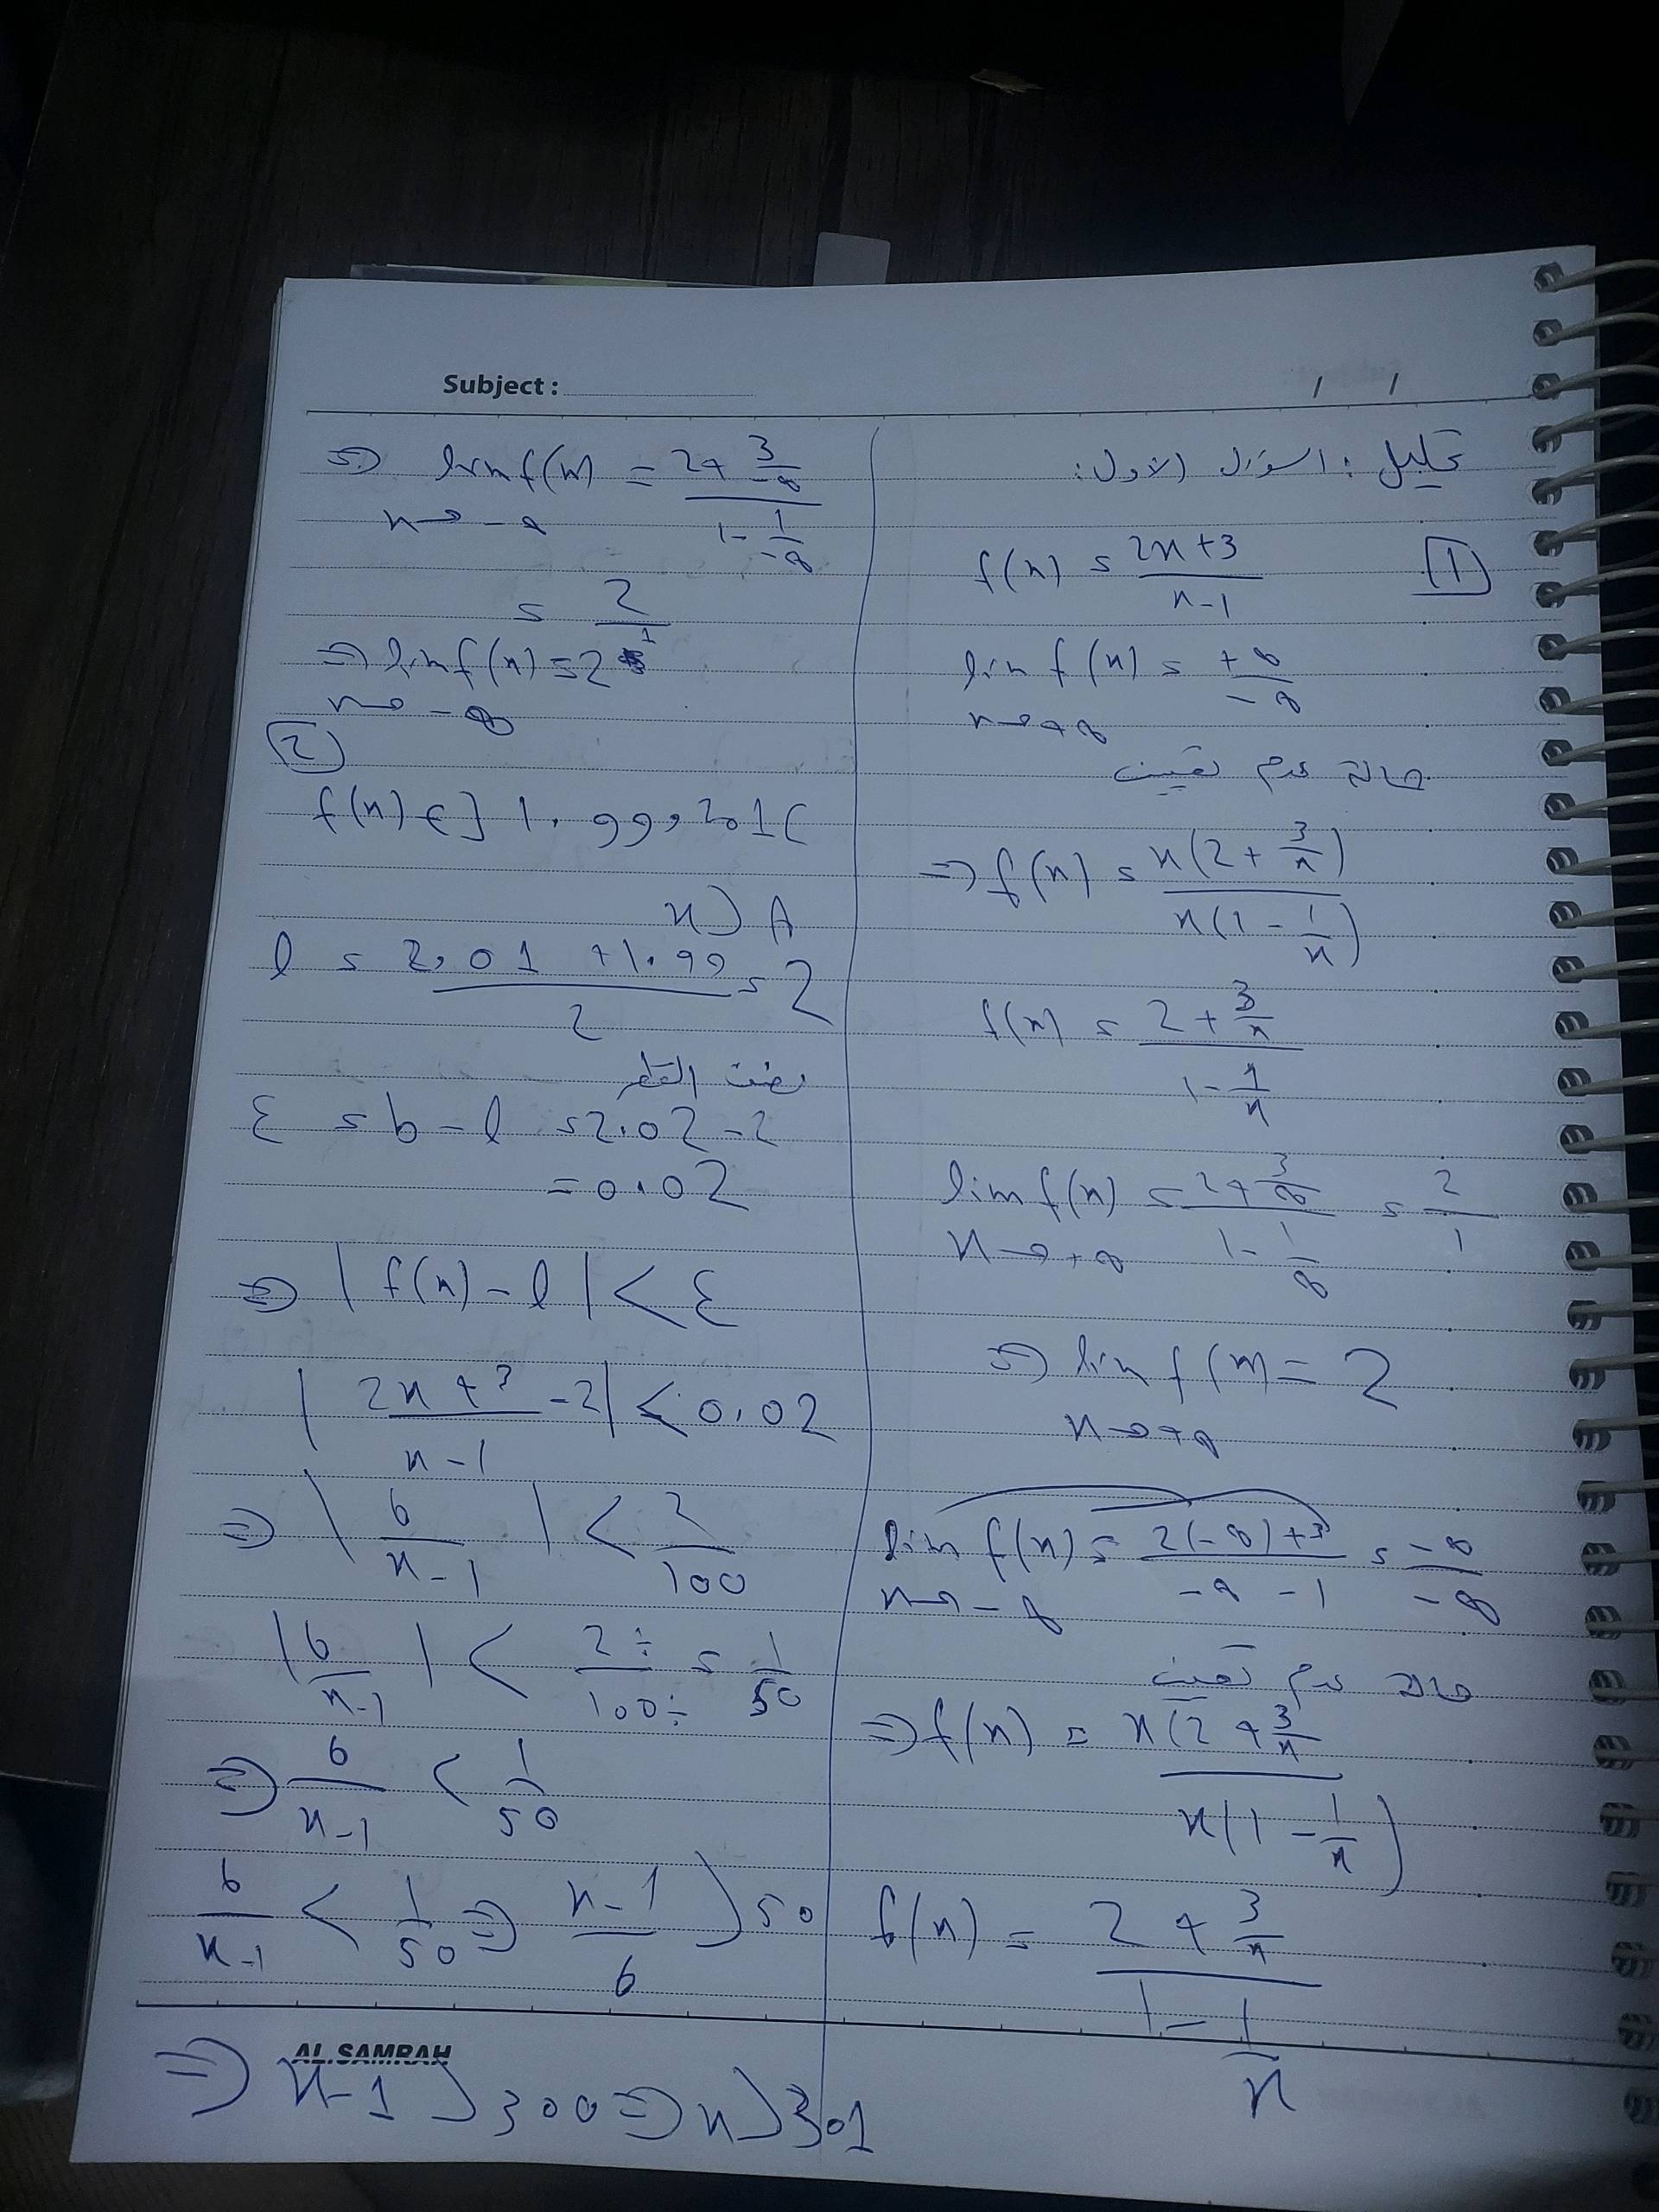 Subject :
تحليل : السؤال الأول:
[1] f(x) = (2x+3)/(x-1)
lim f(x) = (+∞)/(-∞)
x→+∞
حالة عدم تعيين
⇒ f(x) = x(2+3/x) / x(1-1/x)
f(x) = (2+3/x) / (1-1/x)
lim f(x) = (2+3/∞) / (1-1/∞) = 2/1
x→+∞
⇒ lim f(x) = 2
x→+∞
lim f(x) = (2(-∞)+3) / (-∞-1) = (-∞)/(-∞)
x→-∞
حالة عدم تعيين
⇒ f(x) = x(2+3/x / x(1-1/x)
f(x) = (2+3/x) / (1-1/x)
⇒ lim f(x) = (2+3/-∞) / (1-1/-∞)
x→-∞
= 2/1
⇒ lim f(x) = 2
x→-∞
(2)
f(x) ∈ ]1.99, 2.01[
x > A
l = (2.01+1.99)/2 = 2
نصف القطر
ε = b - l = 2.02-2
= 0.02
⇒ |f(x)-l| < ε
|(2x+3)/(x-1) - 2| < 0.02
⇒ |6/(x-1)| < 2/100
|6/(x-1)| < 2÷/100÷ = 1/50
⇒ 6/(x-1) < 1/50
6/(x-1) < 1/50 ⇒ (x-1)/6 > 50
AL.SAMRAH
⇒ x-1 > 300 ⇒ x > 301